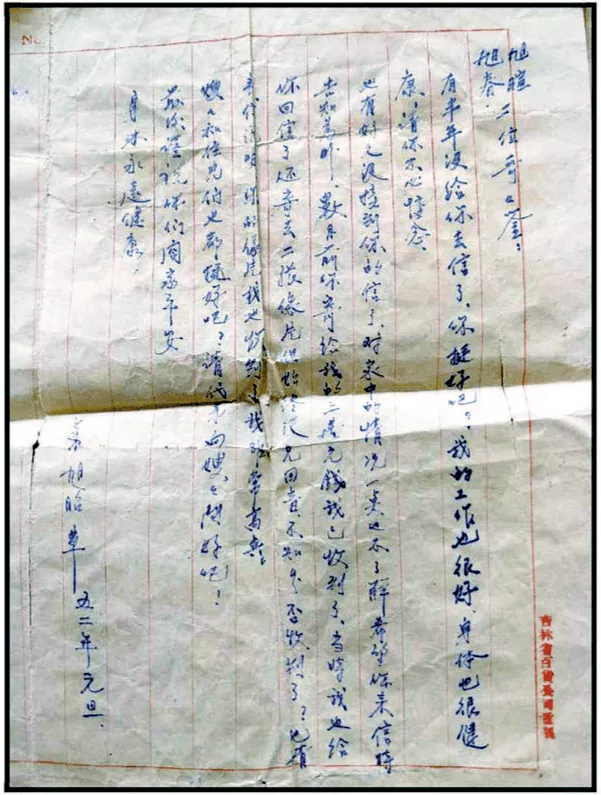 旭暄
旭春 二位哥々鉴：
有半年没给你去信了，你挺好吧？我的工作也很好，身体也很健
康，请你不必惦念。
也有好久没接到你的信了，对家中的情况一点也不了解希望你来信时
告知为盼，数月前你寄给我的二拾元钱我已收到了，当时我也给
你回信了还寄去二张像片但始终没见回音不知是否收到了？也请
来信说明，你的像片我也收到了我非常高兴。
嫂々和侄儿们也都挺好吧？请代我向嫂々问好吧！
最后谨祝你们阖家平安
身体永远健康，
弟旭昭 草
五二年元旦、
吉林省百货公司